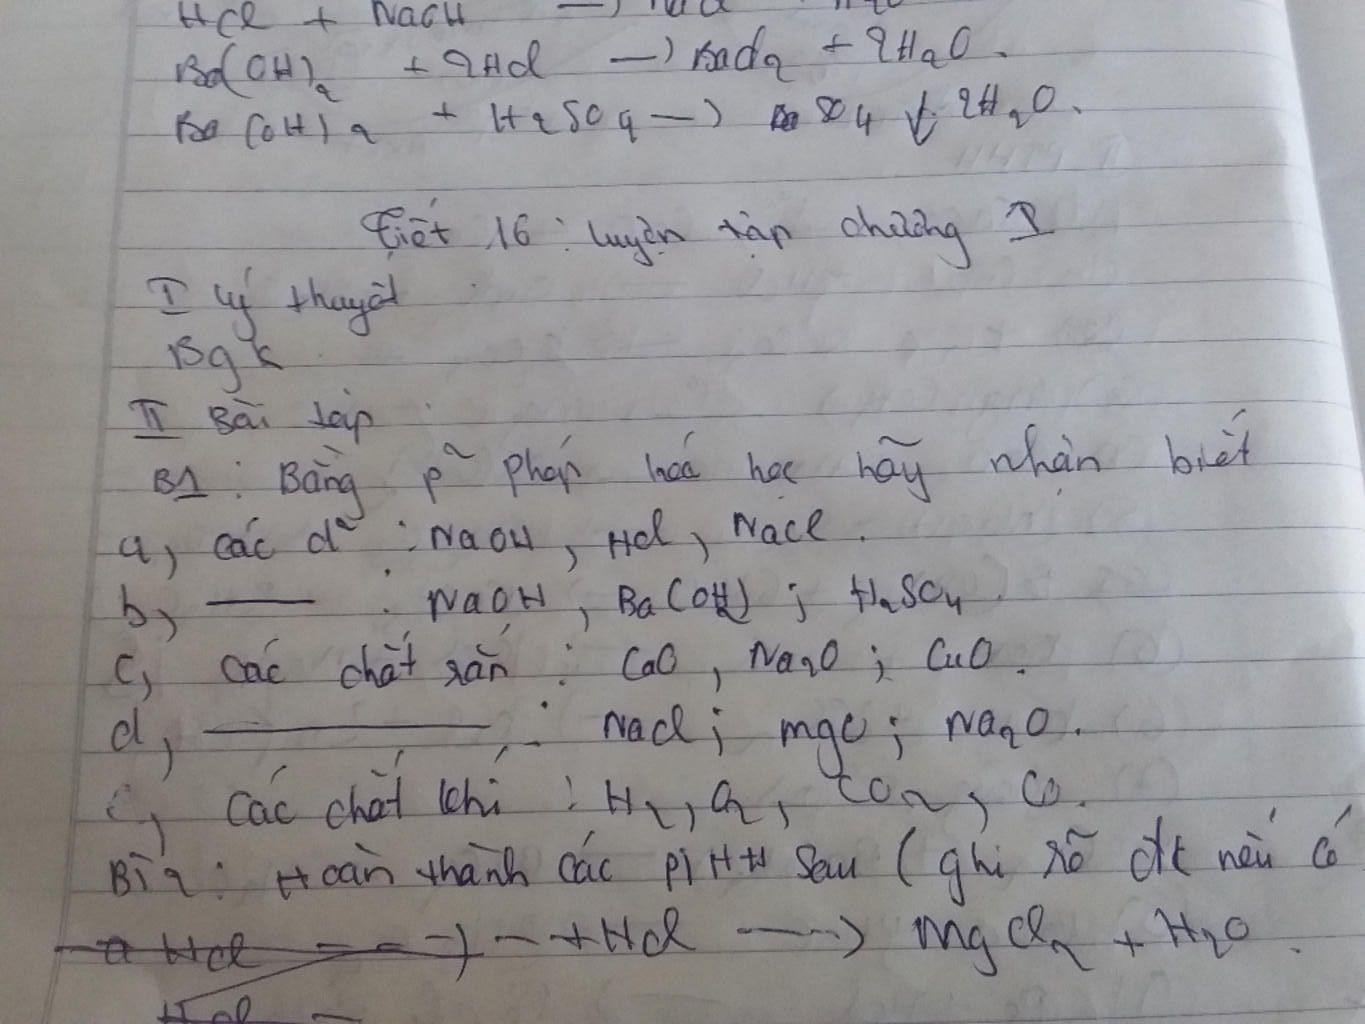 HCl + NaOH —>
Ba(OH)2 + 2HCl —> BaCl2 + 2H2O.
Ba(OH)2 + H2SO4 —> BaSO4 ↓ 2H2O.
Tiết 16 : luyện tập chương I
I lý thuyết
Bgk
II Bài tập
B1 : Bằng p² pháp hoá học hãy nhận biết
a, các d² : NaOH, HCl, NaCl.
b, — : NaOH, Ba(OH)2 ; H2SO4
c, các chất rắn : CaO, Na2O ; CuO.
d, — : NaCl ; MgO ; Na2O.
e, Các chất khí : H2, O2, CO2, CO.
Bì 2 : Hoàn thành các PTHH sau (ghi rõ đk nếu có
a HCl — —> — + HCl ---> MgCl2 + H2O.
HCl —